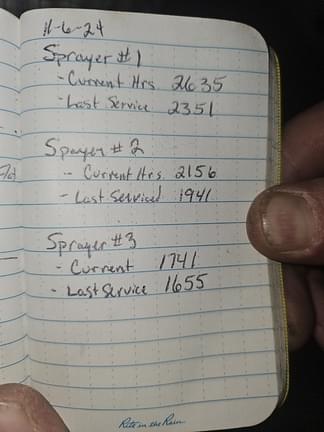 11-6-24
Sprayer #1
- Current Hrs 2635
- Last Service 2351
Sprayer #2
- Current Hrs. 2156
- Last Serviced 1941
Sprayer #3
- Current 1741
- Last Service 1655
Rite in the Rain